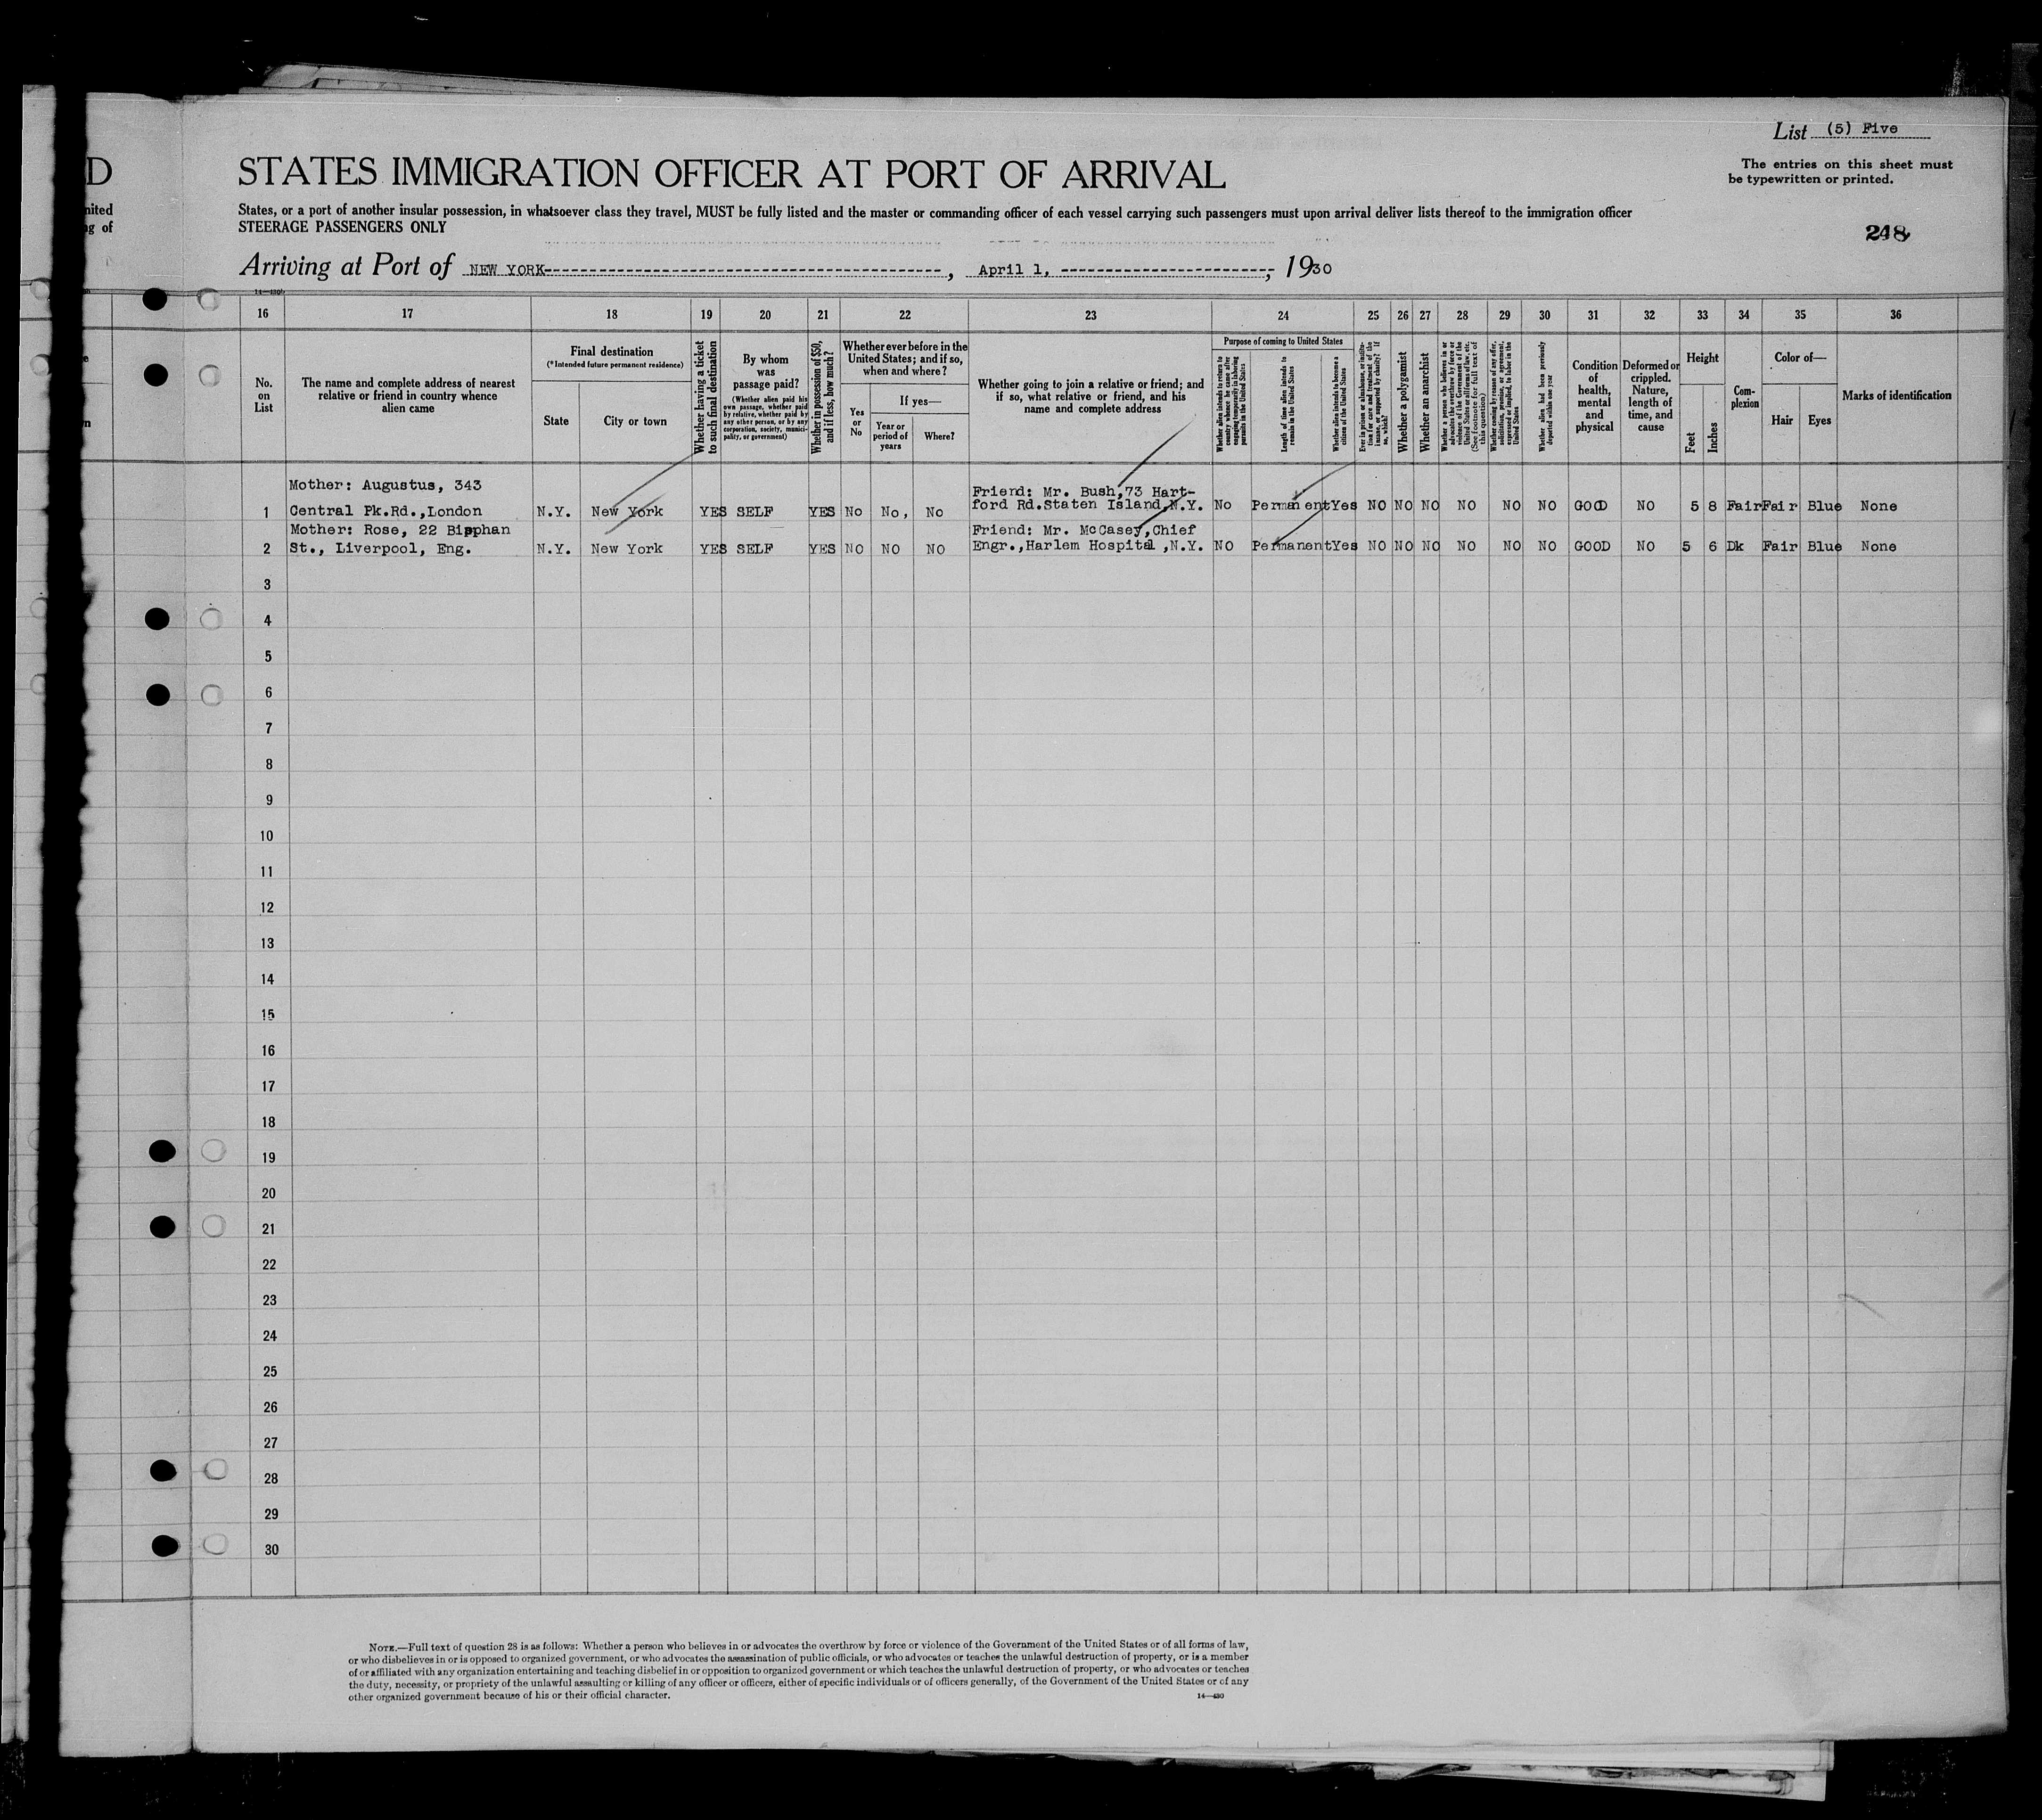 List (5) Five
D
STATES IMMIGRATION OFFICER AT PORT OF ARRIVAL
The entries on this sheet must
be typewritten or printed.
nited
ng of
States, or a port of another insular possession, in whatsoever class they travel, MUST be fully listed and the master or commanding officer of each vessel carrying such passengers must upon arrival deliver lists thereof to the immigration officer
STEERAGE PASSENGERS ONLY
248
Arriving at Port of NEW YORK, April 1, 1930
16 17 18 19 20 21 22 23 24 25 26 27 28 29 30 31 32 33 34 35 36
No.
on
List
The name and complete address of nearest
relative or friend in country whence
alien came
Final destination
(*Intended future permanent residence)
State
City or town
Whether having a ticket
to such final destination
By whom
was
passage paid?
(Whether alien paid his
own passage, whether paid
by relative, whether paid by
any other person, or by any
corporation, society, munici-
pality, or government)
Whether in possession of $50,
and if less, how much?
Whether ever before in the
United States; and if so,
when and where?
Yes
or
No
If yes—
Year or
period of
years
Where?
Whether going to join a relative or friend; and
if so, what relative or friend, and his
name and complete address
Purpose of coming to United States
Whether alien intends to return to
country whence he came after
engaging temporarily in laboring
pursuits in the United States
Length of time alien intends to
remain in the United States
Whether alien intends to become a
citizen of the United States
Ever in prison or almshouse, or institu-
tion for care and treatment of the
insane, or supported by charity? If
so, which?
Whether a polygamist
Whether an anarchist
Whether a person who believes in or
advocates the overthrow by force or
violence of the Government of the
United States or all forms of law, etc.
(See footnote for full text of
this question)
Whether coming by reason of any offer,
solicitation, promise, or agreement,
expressed or implied, to labor in the
United States
Whether alien had been previously
deported within one year
Condition
of
health,
mental
and
physical
Deformed or
crippled.
Nature,
length of
time, and
cause
Height
Feet
Inches
Com-
plexion
Color of—
Hair
Eyes
Marks of identification
Mother: Augustus, 343 Friend: Mr. Bush,73 Hart-
1 Central Pk.Rd.,London N.Y. New York YES SELF YES No No, No ford Rd.Staten Island,N.Y. No Permanent Yes NO NO NO NO NO NO GOOD NO 5 8 Fair Fair Blue None
Mother: Rose, 22 Bipphan Friend: Mr. McCasey,Chief
2 St., Liverpool, Eng. N.Y. New York YES SELF YES NO NO NO Engr.,Harlem Hospital ,N.Y. NO Permanent Yes NO NO NO NO NO NO GOOD NO 5 6 Dk Fair Blue None
3
4
5
6
7
8
9
10
11
12
13
14
15
16
17
18
19
20
21
22
23
24
25
26
27
28
29
30
NOTE.—Full text of question 28 is as follows: Whether a person who believes in or advocates the overthrow by force or violence of the Government of the United States or of all forms of law,
or who disbelieves in or is opposed to organized government, or who advocates the assassination of public officials, or who advocates or teaches the unlawful destruction of property, or is a member
of or affiliated with any organization entertaining and teaching disbelief in or opposition to organized government or which teaches the unlawful destruction of property, or who advocates or teaches
the duty, necessity, or propriety of the unlawful assaulting or killing of any officer or officers, either of specific individuals or of officers generally, of the Government of the United States or of any
other organized government because of his or their official character.
14—430